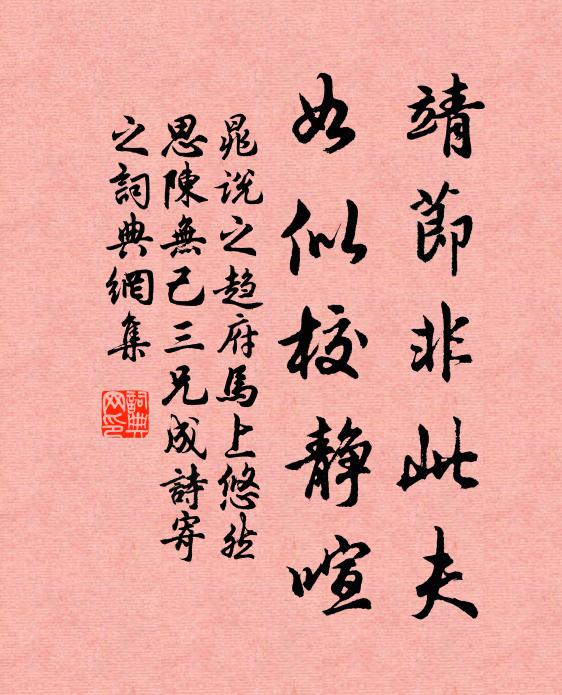 靖節非此夫
如似校靜喧
晁說之趋府馬上悠然
思陳無己三兄成詩寄
之詞典網集
詞典网印